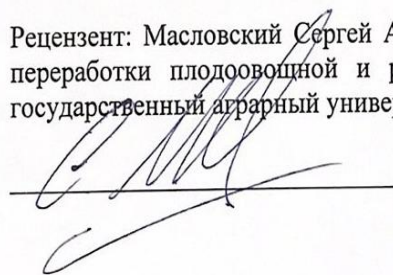 Рецензент: Масловский Сергей А
переработки плодоовощной и р
государственный аграрный универ